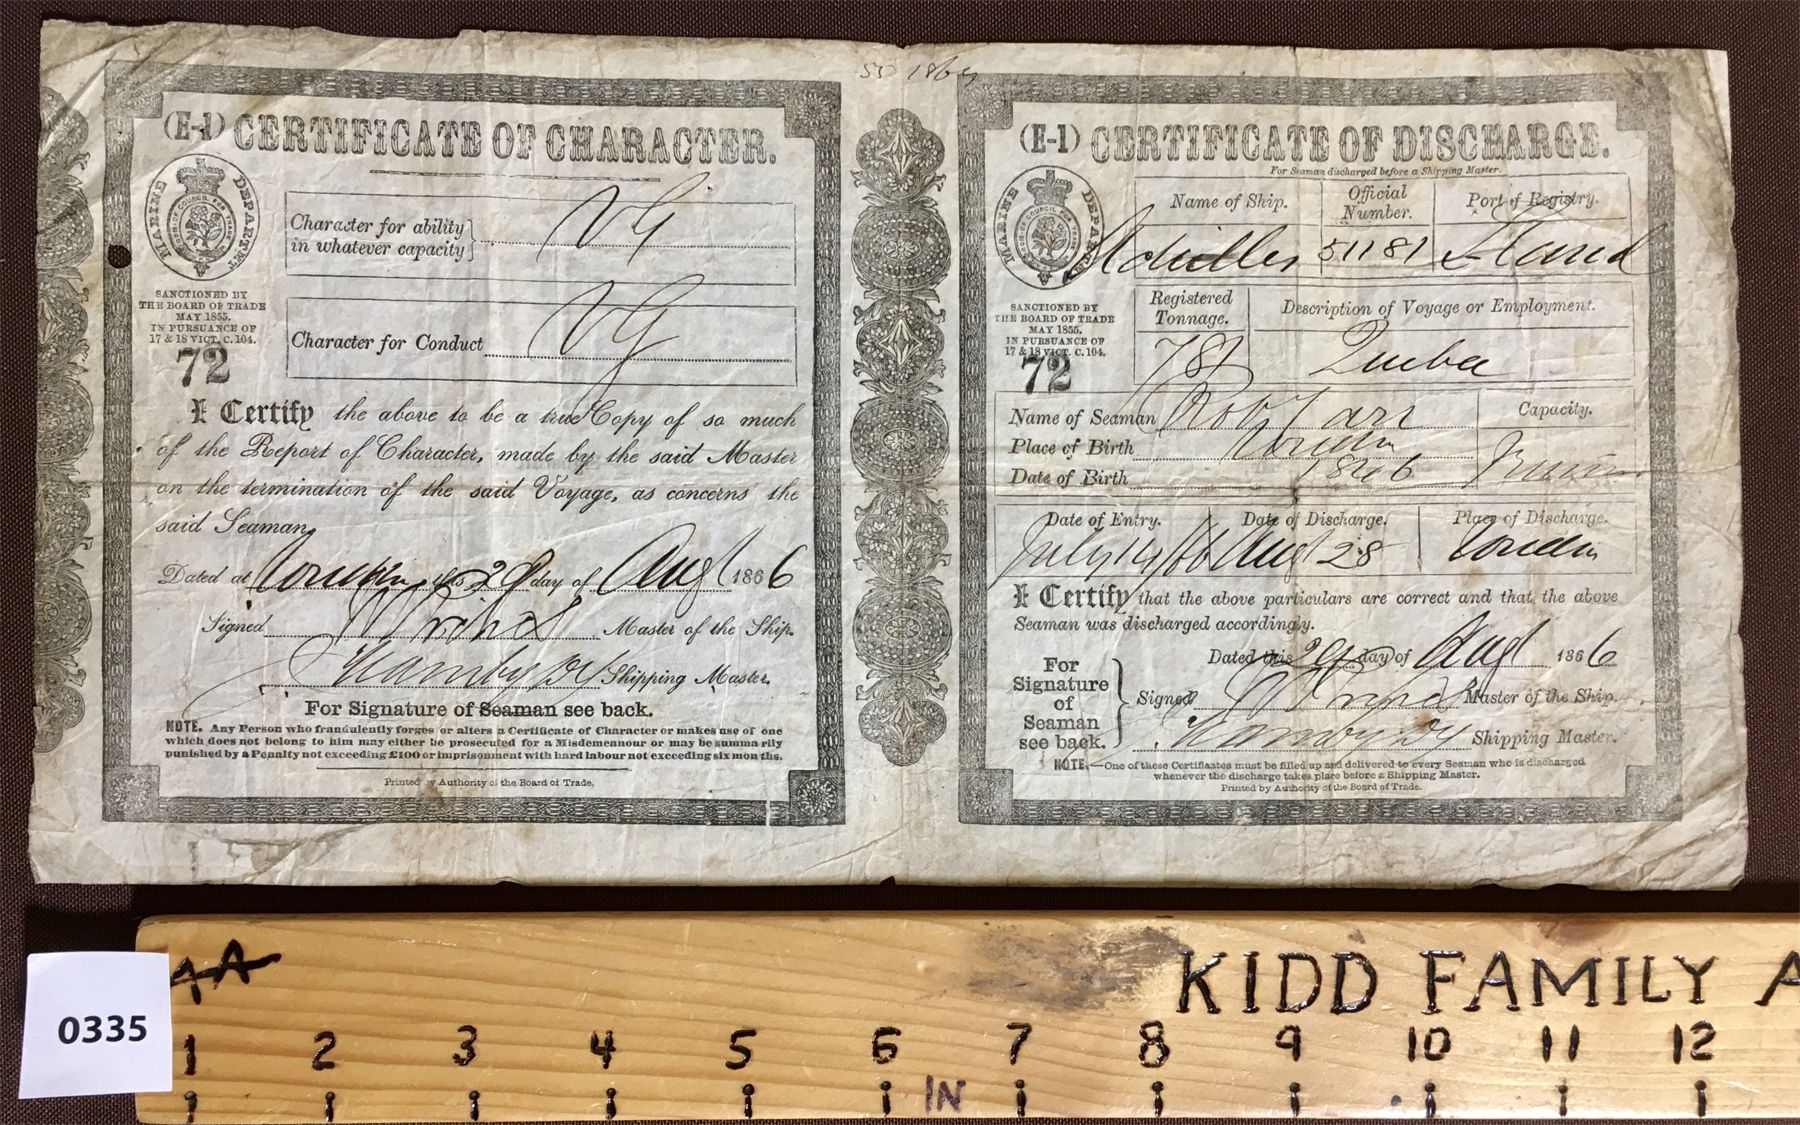 1869
(E-1) CERTIFICATE OF CHARACTER.
MARINE DEPARTMENT
SANCTIONED BY
THE BOARD OF TRADE
MAY 1855.
IN PURSUANCE OF
17 & 18 VICT. C. 104.
72
Character for ability
in whatever capacity
VG
Character for Conduct VG
I Certify the above to be a true Copy of so much
of the Report of Character, made by the said Master
on the termination of the said Voyage, as concerns the
said Seaman,
Dated at London this 29 day of Augt 1866
Signed Master of the Ship.
Shipping Master.
For Signature of Seaman see back.
NOTE. Any Person who fraudulently forges or alters a Certificate of Character or makes use of one
which does not belong to him may either be prosecuted for a Misdemeanour or may be summarily
punished by a Penalty not exceeding £100 or imprisonment with hard labour not exceeding six months.
Printed by Authority of the Board of Trade.
(E-1) CERTIFICATE OF DISCHARGE.
For Seaman discharged before a Shipping Master.
MARINE DEPARTMENT
SANCTIONED BY
THE BOARD OF TRADE
MAY 1855.
IN PURSUANCE OF
17 & 18 VICT. C. 104.
72
Name of Ship. Official Number. Port of Registry.
Achilles 51181
Registered Tonnage. Description of Voyage or Employment.
781 Quebec
Name of Seaman Robt Carr Capacity.
Place of Birth London
Date of Birth 1846
Date of Entry. Date of Discharge. Place of Discharge.
July 14/66 Augt 28 London
I Certify that the above particulars are correct and that the above
Seaman was discharged accordingly.
Dated this 29 day of Augt 1866
For
Signature
of
Seaman
see back.
Signed Master of the Ship.
Shipping Master.
NOTE.—One of these Certificates must be filled up and delivered to every Seaman who is discharged
whenever the discharge takes place before a Shipping Master.
Printed by Authority of the Board of Trade.
0335
KIDD FAMILY A
1 2 3 4 5 6 7 8 9 10 11 12
IN